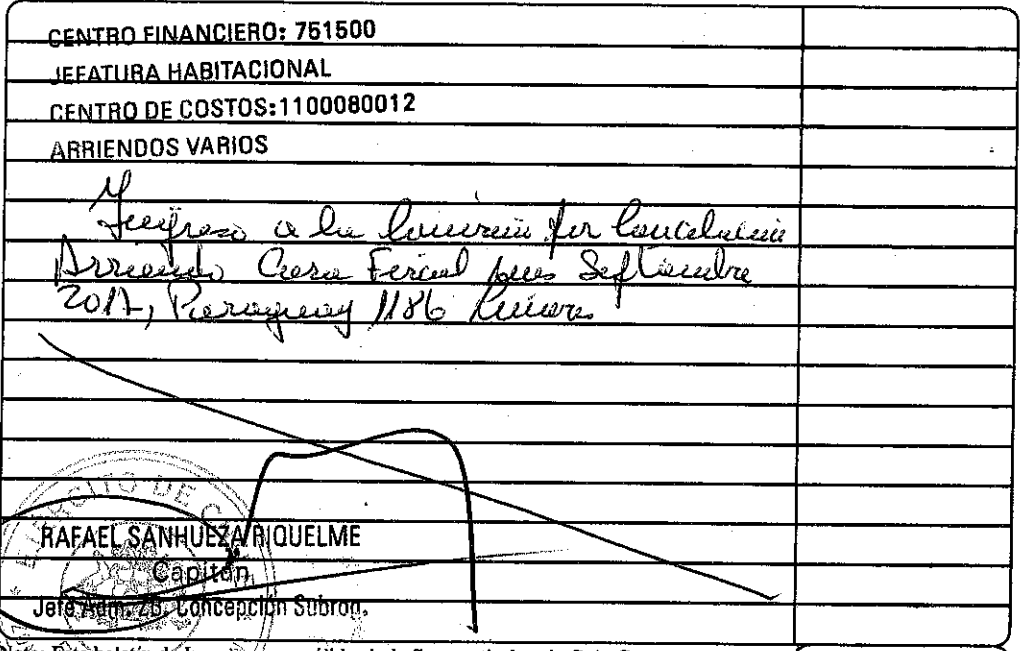 CENTRO FINANCIERO: 751500
JEFATURA HABITACIONAL
CENTRO DE COSTOS:1100080012
ARRIENDOS VARIOS
Ingreso a la por
Arriendo Casa Fiscal mes Septiembre
2017, Paraguay 1186 Linares
EJERCITO DE
RAFAEL SANHUEZA RIQUELME
Capitán
Jefe Adm. ZB. Concepción Subrog.